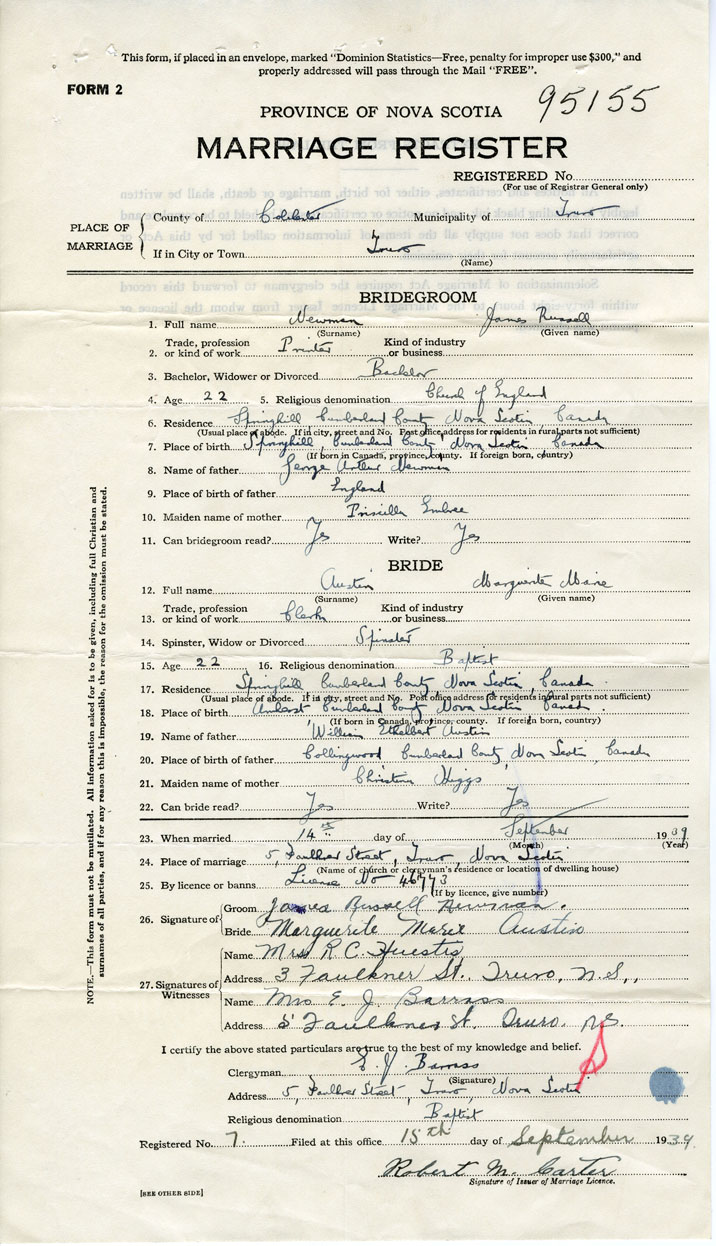 This form, if placed in an envelope, marked "Dominion Statistics—Free, penalty for improper use $300," and
properly addressed will pass through the Mail "FREE".
FORM 2
95155
PROVINCE OF NOVA SCOTIA
MARRIAGE REGISTER
REGISTERED No.
(For use of Registrar General only)
PLACE OF MARRIAGE
County of Colchester Municipality of Truro
If in City or Town Truro
(Name)
BRIDEGROOM
1. Full name Newman James Russell
(Surname) (Given name)
2. Trade, profession or kind of work Printer Kind of industry or business
3. Bachelor, Widower or Divorced Bachelor
4. Age 22 5. Religious denomination Church of England
6. Residence Springhill Cumberland County Nova Scotia, Canada
(Usual place of abode. If in city, street and No. Post office address for residents in rural parts not sufficient)
7. Place of birth Springhill, Cumberland County Nova Scotia Canada
(If born in Canada, province, county. If foreign born, country)
8. Name of father George Arthur Newman
9. Place of birth of father England
10. Maiden name of mother Priscilla Embree
11. Can bridegroom read? Yes Write? Yes
BRIDE
12. Full name Austin Marguerite Marie
(Surname) (Given name)
13. Trade, profession or kind of work Clerk Kind of industry or business
14. Spinster, Widow or Divorced Spinster
15. Age 22 16. Religious denomination Baptist
17. Residence Springhill Cumberland County Nova Scotia Canada
(Usual place of abode. If in city, street and No. Post office address for residents in rural parts not sufficient)
18. Place of birth Amherst Cumberland County Nova Scotia Canada
(If born in Canada, province, county. If foreign born, country)
19. Name of father William Ethelbert Austin
20. Place of birth of father Collingwood Cumberland County, Nova Scotia, Canada
21. Maiden name of mother Christina Higgs
22. Can bride read? Yes Write? Yes
23. When married 14th day of September 1939
(Month) (Year)
24. Place of marriage 5, Faulkner Street, Truro, Nova Scotia
(Name of church or clergyman's residence or location of dwelling house)
25. By licence or banns License No 46773
(If by licence, give number)
26. Signature of
Groom James Russell Newman.
Bride Marguerite Marie Austin
27. Signatures of Witnesses
Name Mrs R.C. Huestis
Address 3 Faulkner St. Truro, N.S.,
Name Mrs E. J. Barrass
Address 5 Faulkner St. Truro, N.S.
I certify the above stated particulars are true to the best of my knowledge and belief.
Clergyman E. J. Barrass
(Signature)
Address 5, Faulkner Street, Truro, Nova Scotia
Religious denomination Baptist
Registered No. 7. Filed at this office 15th day of September 1939.
Robert M. Carter
Signature of Issuer of Marriage Licence.
[SEE OTHER SIDE]
NOTE.—This form must not be mutilated. All information asked for is to be given, including full Christian and
surnames of all parties, and if for any reason this is impossible, the reason for the omission must be stated.